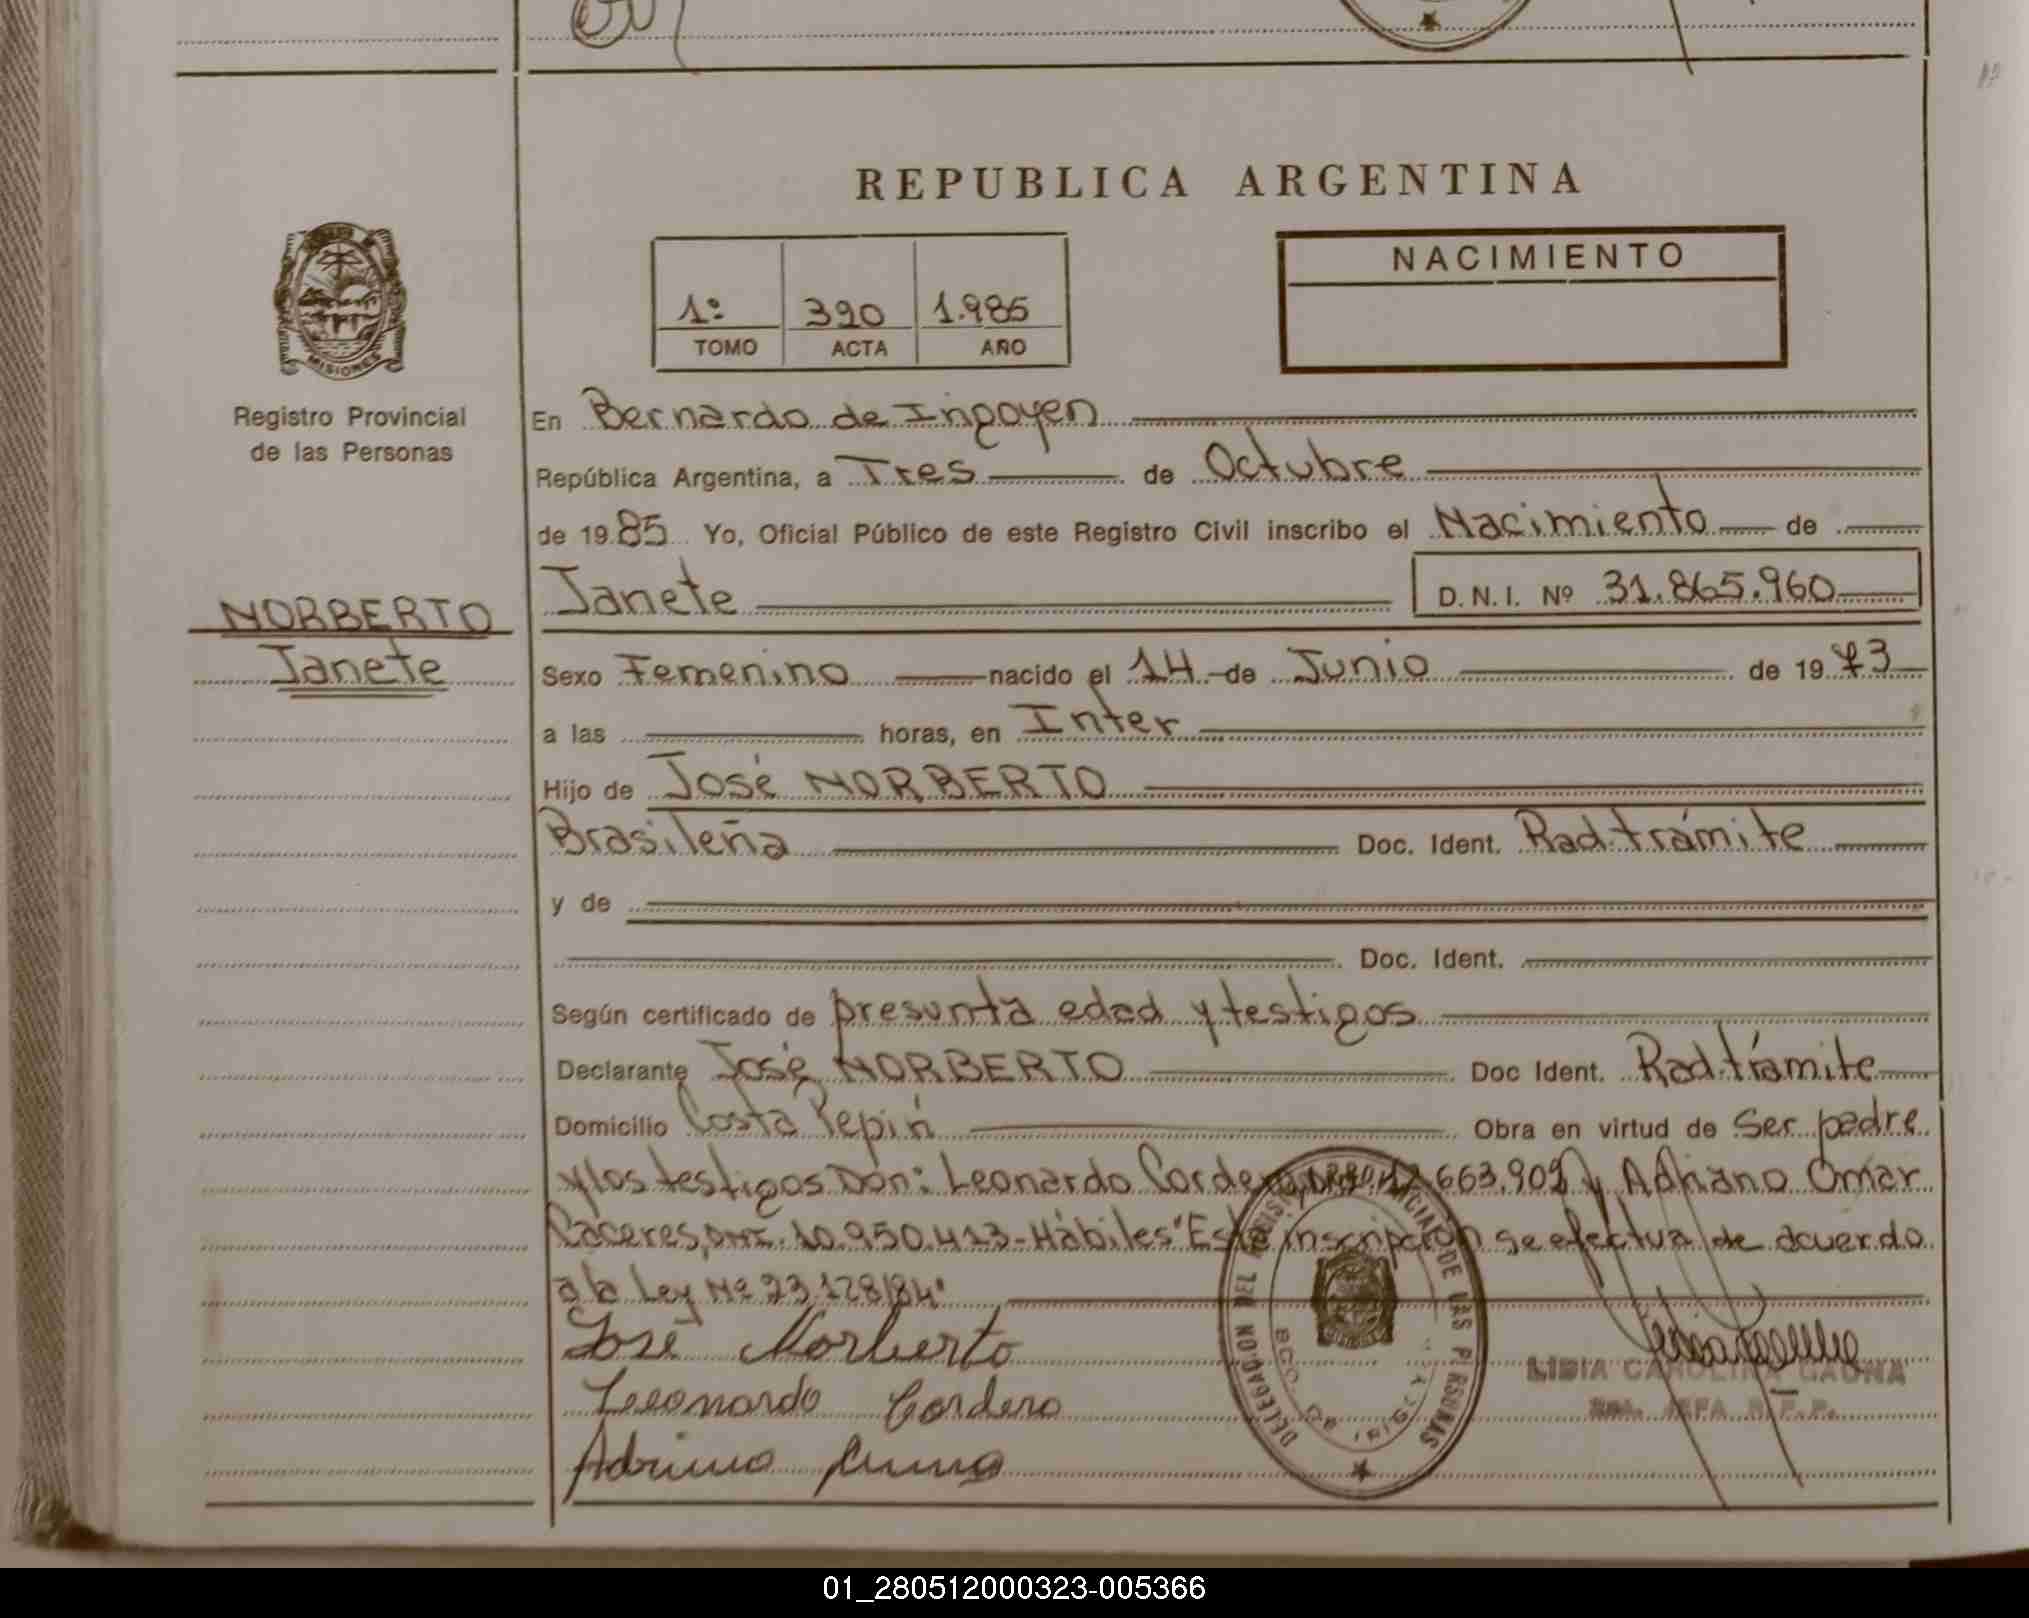 REPUBLICA ARGENTINA
NACIMIENTO
1º 390 1.985
TOMO ACTA AÑO
MISIONES
Registro Provincial
de las Personas
En Bernardo de Irigoyen
República Argentina, a Tres de Octubre
de 1985 Yo, Oficial Público de este Registro Civil inscribo el Nacimiento de
Janete D.N.I. Nº 31.865.960
NORBERTO
Janete
Sexo Femenino nacido el 14 de Junio de 1973
a las horas, en Inter
Hijo de José NORBERTO
Brasileña Doc. Ident. Rad.trámite
y de
Doc. Ident.
Según certificado de presunta edad y testigos
Declarante José NORBERTO Doc Ident. Rad.trámite
Domicilio Costa Pepirí Obra en virtud de ser padre
y los testigos Don: Leonardo Cordero, 663.909 y Adriano Omar
Caceres, DNI. 10.950.413-Hábiles"Esta inscripción se efectua de acuerdo
a la Ley Nº 23.128/84"
José Norberto
Leonardo Cordero
DELEGACION DEL REGISTRO PROVINCIAL DE LAS PERSONAS
BDO. DE IRIGOYEN
LIDIA CAROLINA GAUNA
JEFA R.P.P.
01_280512000323-005366